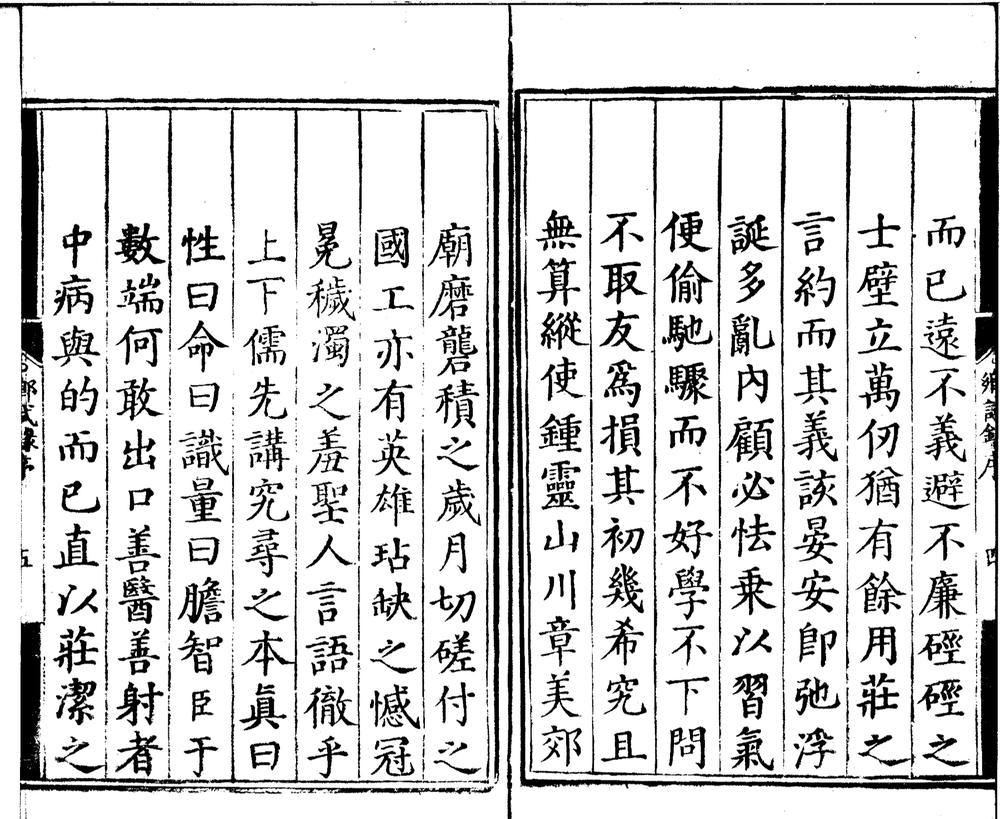 而已遠不義避不廉硜硜之
士壁立萬仞猶有餘用莊之
言約而其義該晏安卽弛浮
誕多亂內顧必怯乗以習氣
便偷馳驟而不好學不下問
不取友爲損其初幾希究且
無算縱使鍾靈山川章美郊
鄉試錄序 四
廟磨礲積之歲月切磋付之
國工亦有英雄玷缺之憾冠
冕穢濁之羞聖人言語徹乎
上下儒先講究尋之本眞曰
性曰命曰識量曰膽智臣于
數端何敢出口善醫善射者
中病與的而已直以莊潔之
鄉試錄序 五